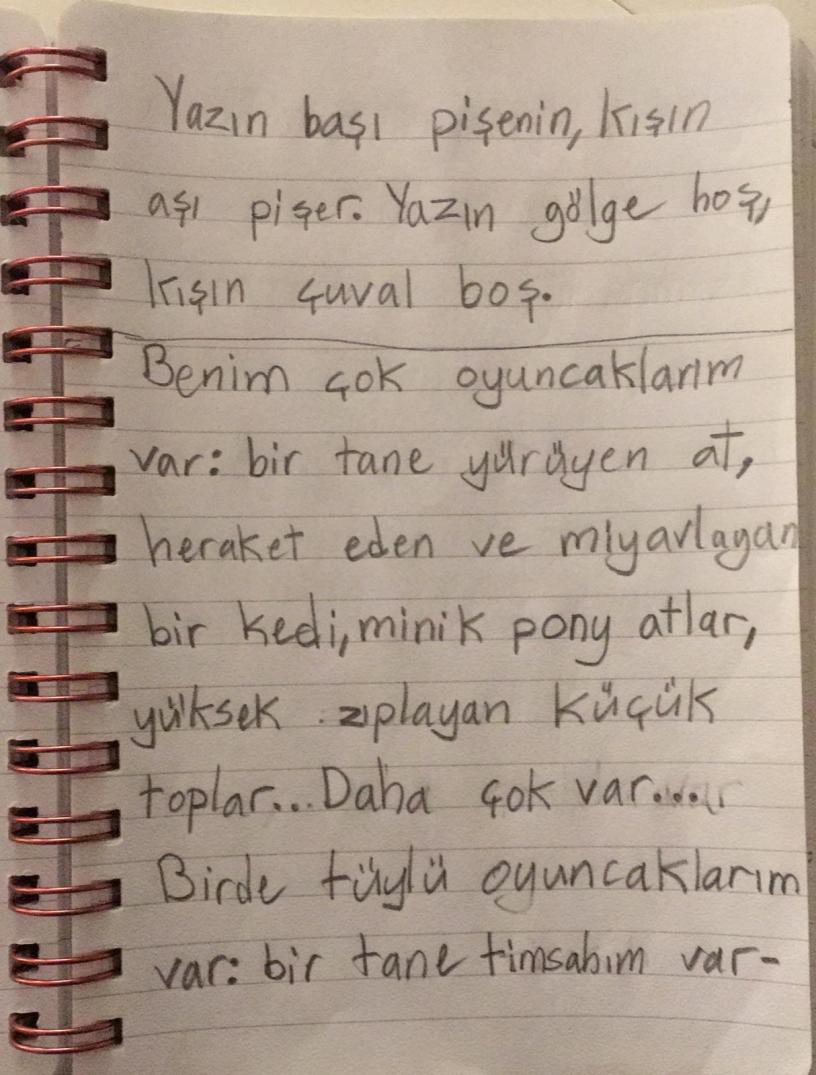 Yazın başı pişenin, kışın
aşı pişer. Yazın gölge hoş,
kışın çuval boş.
Benim çok oyuncaklarım
var: bir tane yürüyen at,
heraket eden ve miyavlayan
bir kedi, minik pony atlar,
yüksek zıplayan küçük
toplar... Daha çok var....
Birde tüylü oyuncaklarım
var: bir tane timsahım var-